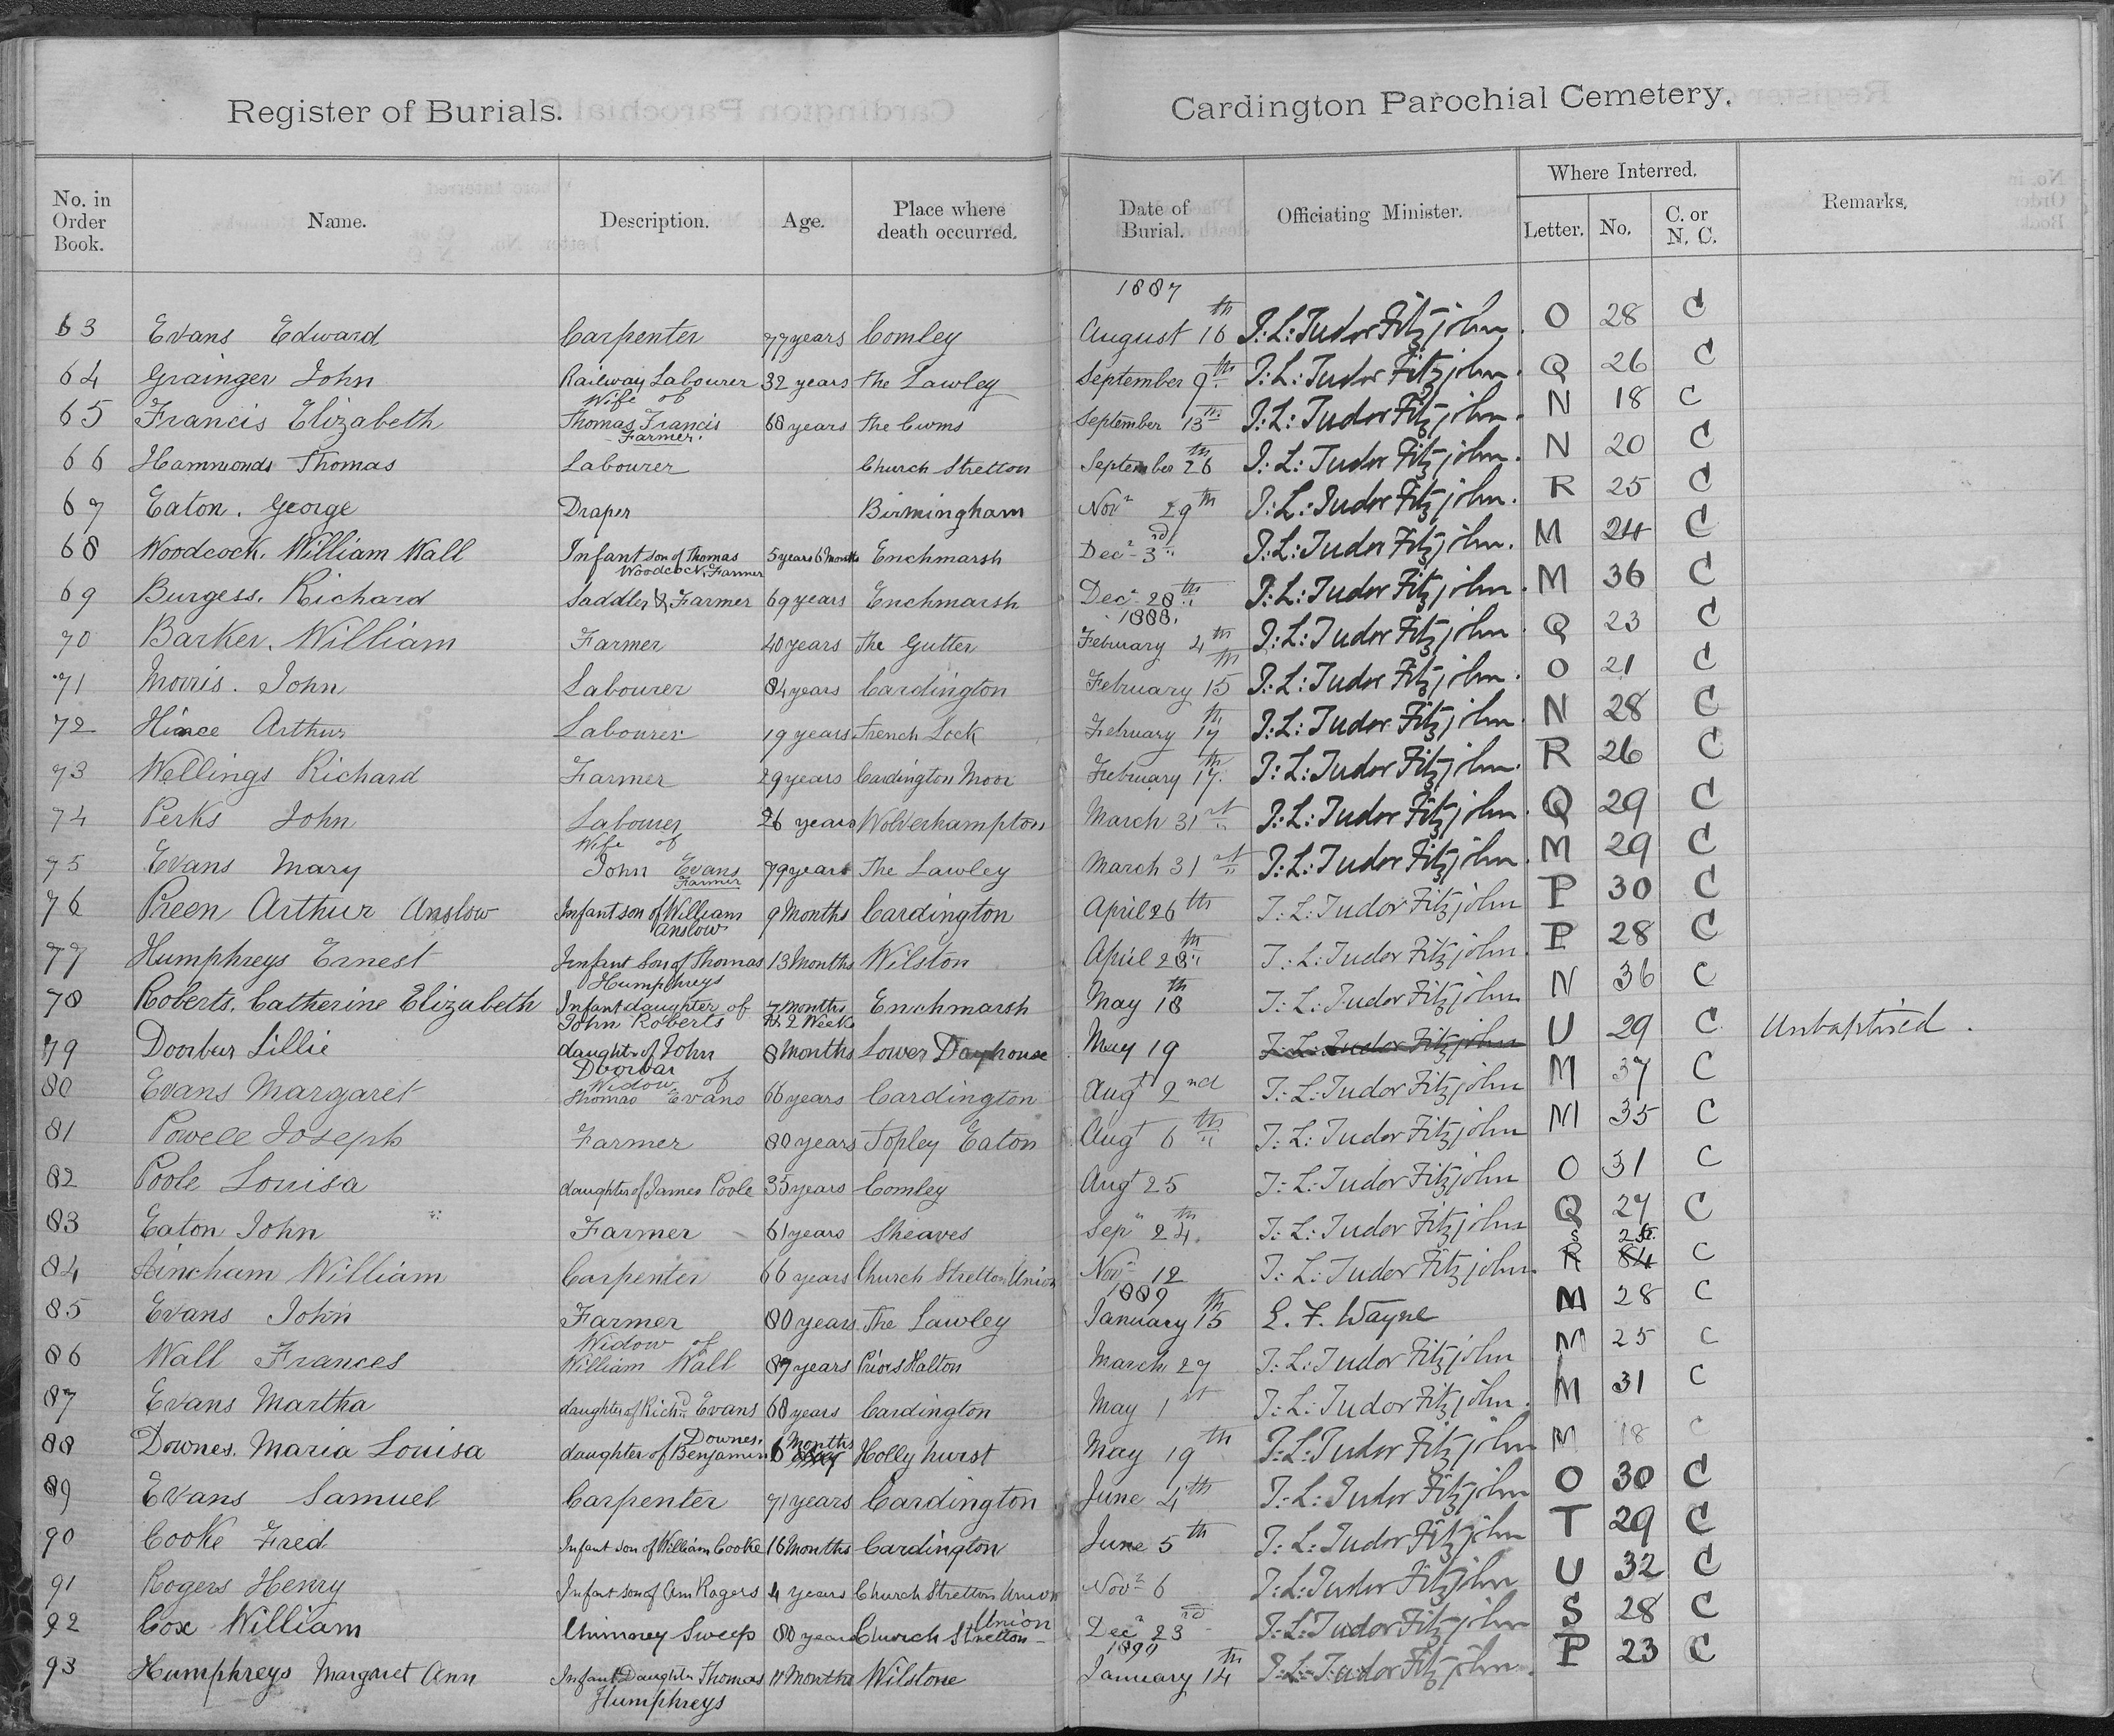 Register of Burials. Cardington Parochial Cemetery.
No. in Order Book. Name. Description. Age. Place where death occurred. Date of Burial. Officiating Minister. Where Interred. Letter. No. C. or N. C. Remarks.
1887
63 Evans Edward Carpenter 77 years Comley August 16th T: L: Tudor Fitzjohn. O 28 C
64 Grainger John Railway Labourer 32 years The Lawley September 9th T: L: Tudor Fitzjohn. Q 26 C
65 Francis Elizabeth Wife of Thomas Francis Farmer. 68 years The Cwms September 13th T: L: Tudor Fitzjohn. N 18 C
66 Hammonds Thomas Labourer Church Stretton September 26th T: L: Tudor Fitzjohn. N 20 C
67 Eaton. George Draper Birmingham Novr 29th T: L: Tudor Fitzjohn. R 25 C
68 Woodcock. William Wall Infant son of Thomas Woodcock. Farmer 5 years 6 Months Enchmarsh Decr 3rd T: L: Tudor Fitzjohn. M 24 C
69 Burgess. Richard Saddler & Farmer 69 years Enchmarsh Decr 28th T: L: Tudor Fitzjohn. M 36 C
1888.
70 Barker. William Farmer 40 years The Gutter February 4th T: L: Tudor Fitzjohn. Q 23 C
71 Morris. John Labourer 84 years Cardington February 15th T: L: Tudor Fitzjohn. O 21 C
72 Hince Arthur Labourer 19 years Trench Lock February 17th T: L: Tudor Fitzjohn. N 28 C
73 Wellings Richard Farmer 29 years Cardington Moor February 17th. T: L: Tudor Fitzjohn. R 26 C
74 Perks John Labourer 26 years Wolverhampton March 31st T: L: Tudor Fitzjohn. Q 29 C
75 Evans Mary Wife of John Evans Farmer 79 years The Lawley March 31st T: L: Tudor Fitzjohn. M 29 C
76 Preen Arthur Anslow Infant son of William Anslow 9 Months Cardington April 26th T: L: Tudor Fitzjohn P 30 C
77 Humphreys Ernest Infant Son of Thomas Humphreys 13 Months Wilston April 28th T: L: Tudor Fitzjohn. P 28 C
78 Roberts. Catherine Elizabeth Infant daughter of John Roberts 7 months & 2 Weeks Enchmarsh May 18th T: L: Tudor Fitzjohn N 36 C
79 Doorbur Lillie daughter of John Doorbar 8 Months Lower Dayhouse May 19 T: L: Tudor Fitzjohn U 29 C Unbaptised.
80 Evans Margaret Widow of Thomas Evans 66 years Cardington Augt 2nd T: L: Tudor Fitzjohn M 37 C
81 Powell Joseph Farmer 80 years Topley Eaton Augt 6th T: L: Tudor Fitzjohn M 35 C
82 Poole Louisa daughter of James Poole 35 years Comley Augt 25 T: L: Tudor Fitzjohn O 31 C
83 Eaton John Farmer 61 years Sheaves Sepr 24th. T: L: Tudor Fitzjohn Q 27 C
84 Hincham William Carpenter 66 years Church Stretton Union Novr 12 T: L: Tudor Fitzjohn. S R 84 C
1889
85 Evans John Farmer 80 years The Lawley January 15th E. F. Wayne M 28 C
86 Wall Frances Widow of William Wall 87 years Priors Halton March 27 T: L: Tudor Fitzjohn M 25 C
87 Evans Martha daughter of Richd Evans 68 years Cardington May 1st T: L: Tudor Fitzjohn. M 31 C
88 Downes. Maria Louisa daughter of Benjamin Downes. 6 Months Holly hurst May 19th T: L: Tudor Fitzjohn M 18 C
89 Evans Samuel Carpenter 71 years Cardington June 4th T: L: Tudor Fitzjohn O 30 C
90 Cooke Fred Infant son of William Cooke 16 Months Cardington June 5th T: L: Tudor Fitzjohn T 29 C
91 Rogers Henry Infant son of Ann Rogers 4 years Church Stretton Union Novr 6 T: L: Tudor Fitzjohn U 32 C
92 Cox William Chimney Sweep 80 years Church Stretton Union Decr 23rd T: L: Tudor Fitzjohn S 28 C
1890
93 Humphreys Margaret Ann Infant Daughter Thomas Humphreys 11 Months Wilstone January 14th T: L: Tudor Fitzjohn. P 23 C